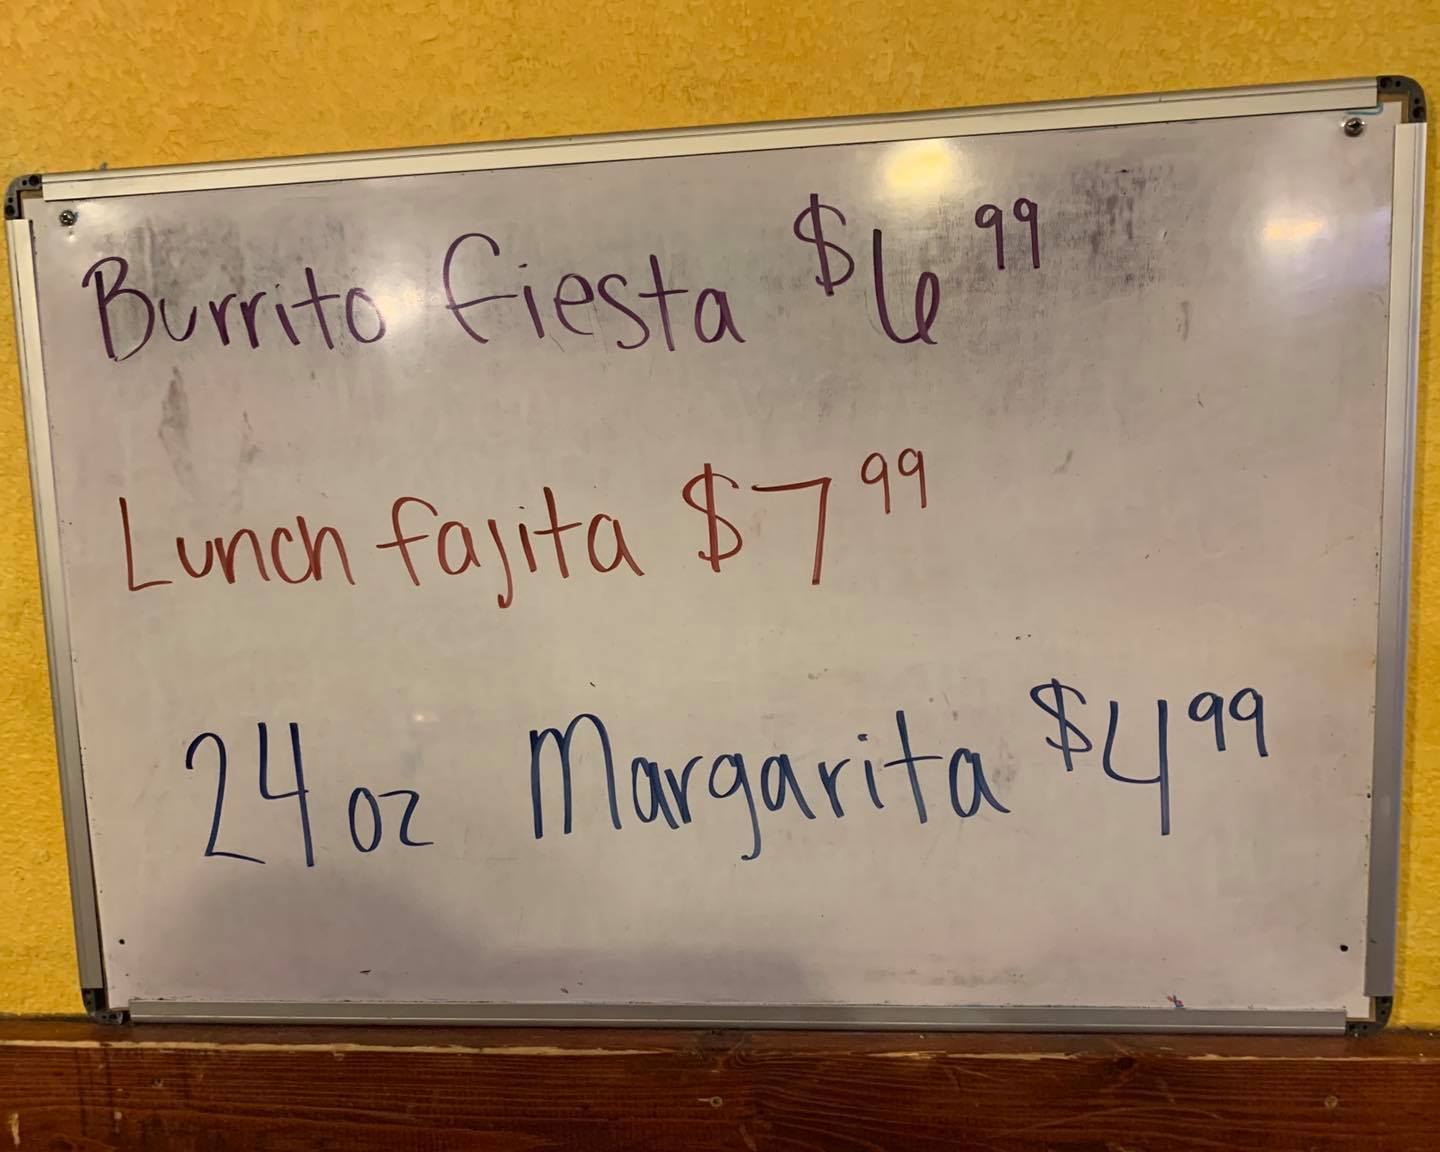 Burrito fiesta $6.99
Lunch fajita $7.99
24 oz Margarita $4.99